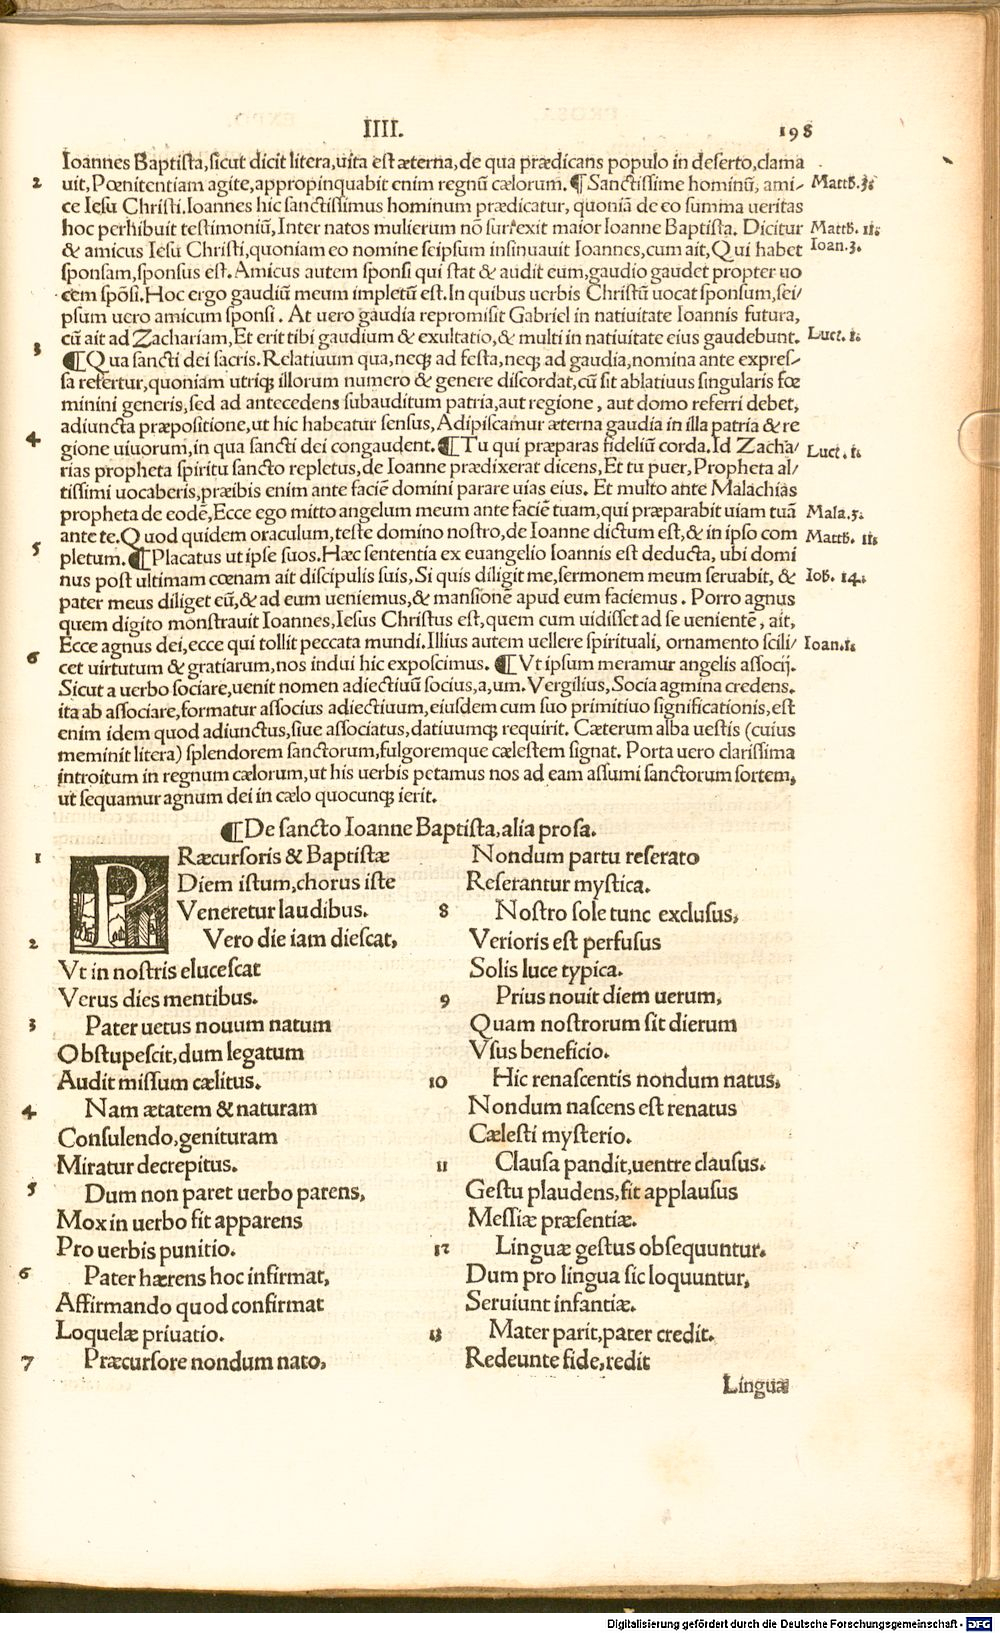 IIII.
198
Ioannes Baptista,sicut dicit litera,uita est æterna,de qua prædicans populo in deserto,clama
2 uit,Pœnitentiam agite,appropinquabit enim regnū cælorum. ¶ Sanctissime hominū, ami- Matth.3.
ce Iesu Christi.Ioannes hic sanctissimus hominum prædicatur, quoniā de eo summa ueritas
hoc perhibuit testimoniū, Inter natos mulierum nō surrexit maior Ioanne Baptista. Dicitur Matth. 11.
& amicus Iesu Christi,quoniam eo nomine seipsum insinuauit Ioannes,cum ait,Qui habet Ioan.3.
sponsam,sponsus est. Amicus autem sponsi qui stat & audit eum,gaudio gaudet propter uo
cem spōsi.Hoc ergo gaudiū meum impletū est.In quibus uerbis Christū uocat sponsum,sei/
psum uero amicum sponsi . At uero gaudia repromisit Gabriel in natiuitate Ioannis futura,
cū ait ad Zachariam,Et erit tibi gaudium & exultatio,& multi in natiuitate eius gaudebunt. Luce. 1.
3 ¶Qua sancti dei sacris. Relatiuum qua,neq; ad festa,neq; ad gaudia,nomina ante expres-
sa refertur,quoniam utriq; illorum numero & genere discordat,cū sit ablatiuus singularis fœ
minini generis,sed ad antecedens subauditum patria,aut regione , aut domo referri debet,
adiuncta præpositione,ut hic habeatur sensus,Adipiscamur æterna gaudia in illa patria & re
4 gione uiuorum,in qua sancti dei congaudent. ¶Tu qui præparas fideliū corda.Id Zacha/ Luce. 1.
rias propheta spiritu sancto repletus,de Ioanne prædixerat dicens,Et tu puer,Propheta al/
tissimi uocaberis,præibis enim ante faciē domini parare uias eius. Et multo ante Malachias
propheta de eodē,Ecce ego mitto angelum meum ante faciē tuam,qui præparabit uiam tuā Mala.3.
ante te.Quod quidem oraculum,teste domino nostro,de Ioanne dictum est,& in ipso com Matth. 11.
5 pletum. ¶Placatus ut ipse suos.Hæc sententia ex euangelio Ioannis est deducta, ubi domi
nus post ultimam cœnam ait discipulis suis,Si quis diligit me,sermonem meum seruabit, & Ioh. 14.
pater meus diliget eū,& ad eum ueniemus,& mansionē apud eum faciemus . Porro agnus
quem digito monstrauit Ioannes,Iesus Christus est,quem cum uidisset ad se uenientē, ait,
Ecce agnus dei,ecce qui tollit peccata mundi.Illius autem uellere spirituali, ornamento scili/ Ioan.1.
6 cet uirtutum & gratiarum,nos indui hic exposcimus. ¶Vt ipsum meramur angelis associj.
Sicut a uerbo sociare,uenit nomen adiectiuū socius,a,um. Vergilius,Socia agmina credens.
ita ab associare,formatur associus adiectiuum,eiusdem cum suo primitiuo significationis,est
enim idem quod adiunctus,siue associatus,datiuumq; requirit. Cæterum alba uestis (cuius
meminit litera) splendorem sanctorum,fulgoremque cælestem signat. Porta uero clarissima
introitum in regnum cælorum,ut his uerbis petamus nos ad eam assumi sanctorum sortem,
ut sequamur agnum dei in cælo quocunq; ierit.
¶De sancto Ioanne Baptista,alia prosa.
1 PRæcursoris & Baptistæ
Diem istum,chorus iste
Veneretur laudibus.
2 Vero die iam diescat,
Vt in nostris elucescat
Verus dies mentibus.
3 Pater uetus nouum natum
Obstupescit,dum legatum
Audit missum cælitus.
4 Nam ætatem & naturam
Consulendo,genituram
Miratur decrepitus.
5 Dum non paret uerbo parens,
Mox in uerbo fit apparens
Pro uerbis punitio.
6 Pater hærens hoc infirmat,
Affirmando quod confirmat
Loquelæ priuatio.
7 Præcursore nondum nato,
Nondum partu reserato
Reserantur mystica.
8 Nostro sole tunc exclusus,
Verioris est perfusus
Solis luce typica.
9 Prius nouit diem uerum,
Quam nostrorum sit dierum
Vsus beneficio.
10 Hic renascentis nondum natus,
Nondum nascens est renatus
Cælesti mysterio.
11 Clausa pandit,uentre clausus.
Gestu plaudens,fit applausus
Messiæ præsentiæ.
12 Linguæ gestus obsequuntur.
Dum pro lingua sic loquuntur,
Seruiunt infantiæ.
13 Mater parit,pater credit.
Redeunte fide,redit
Linguæ
Digitalisierung gefördert durch die Deutsche Forschungsgemeinschaft - DFG